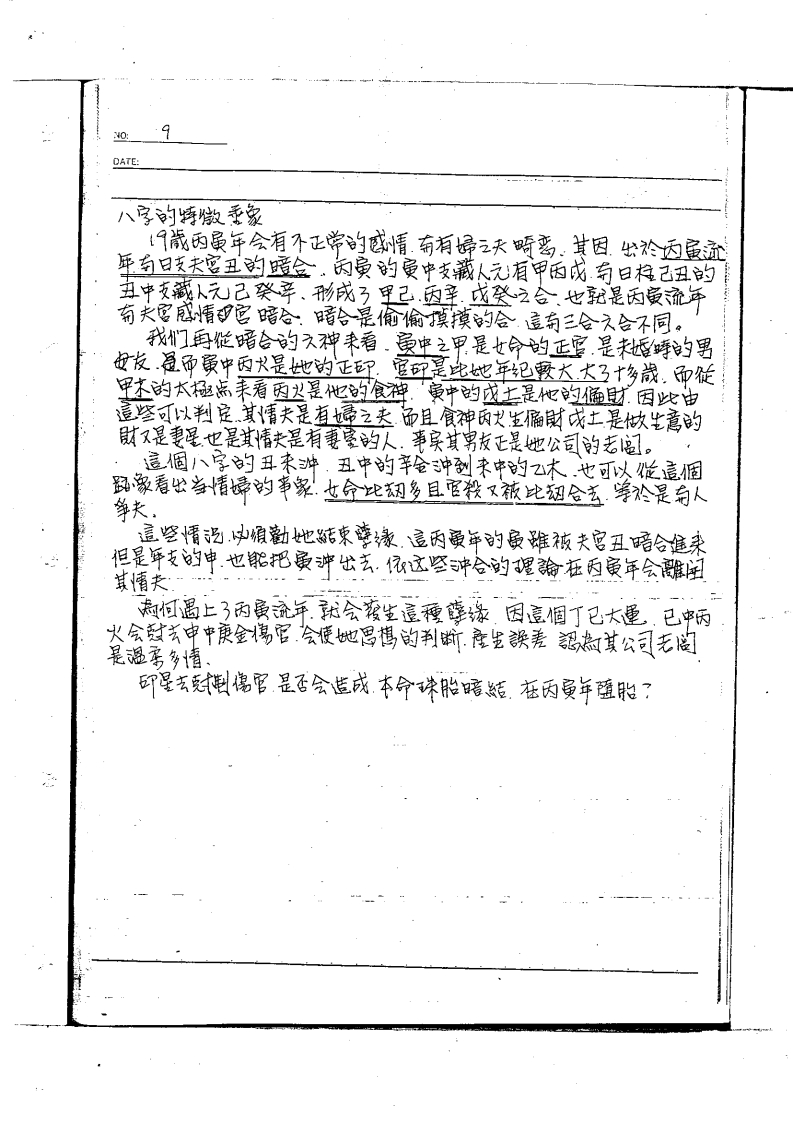 NO: 9
DATE:
八字的特徵垂象
19歲丙寅年会有不正常的感情.有有婦之夫畸恋.其因.出於丙寅流
年有日支夫宮丑的暗合.丙寅的寅中支藏人元有甲丙戊.有日柱己丑的
丑中支藏人元己癸辛.形成了甲己.丙辛.戊癸之合.也就是丙寅流年
有夫宮感情宮暗合.暗合是偷偷摸摸的合.這有三合六合不同。
我们再從暗合的六神来看.寅中之甲.是女命的正官.是未婚時的男
女友.而寅中丙火是她的正印.官印是比她年纪較大大了十多歲.而從
甲木的太極点来看丙火是他的食神.寅中的戊土是他的偏財.因此由
這些可以判定.其情夫是有婦之夫.而且食神丙火生偏財戊土是做生意的
財又是妻星也是其情夫是有妻室的人.事实其男友正是她公司的老闆。
這個八字的丑未沖.丑中的辛金沖到未中的乙木.也可以從這個
現象看出当情婦的事象.女命比劫多且官殺又被比劫合去.等於是有人
爭夫。
這些情況.必須勸她結束孽缘.這丙寅年的寅雖被夫宮丑暗合進来
但是年支的申.也能把寅沖出去.依这些沖合的理論在丙寅年会離開
其情夫
為何遇上了丙寅流年.就会發生這種孽缘.因這個丁巳大運.巳中丙
火会尅去申中庚金傷官.会使她思想的判断.產生誤差 認為其公司老闆
是溫柔多情.
印星去尅制傷官.是否会造成.本命珠胎暗結.在丙寅年墮胎?